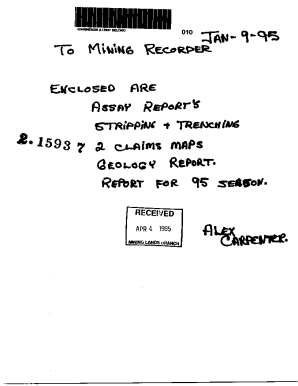 010 JAN-9-95
TO MINING RECORDER
ENCLOSED ARE
ASSAY REPORT'S
STRIPPING + TRENCHING
2.15937 2 CLAIMS MAPS
GEOLOGY REPORT.
REPORT FOR 95 SEASON.
RECEIVED
APR 4 1995
MINING LANDS BRANCH
ALEX
CARPENTER.